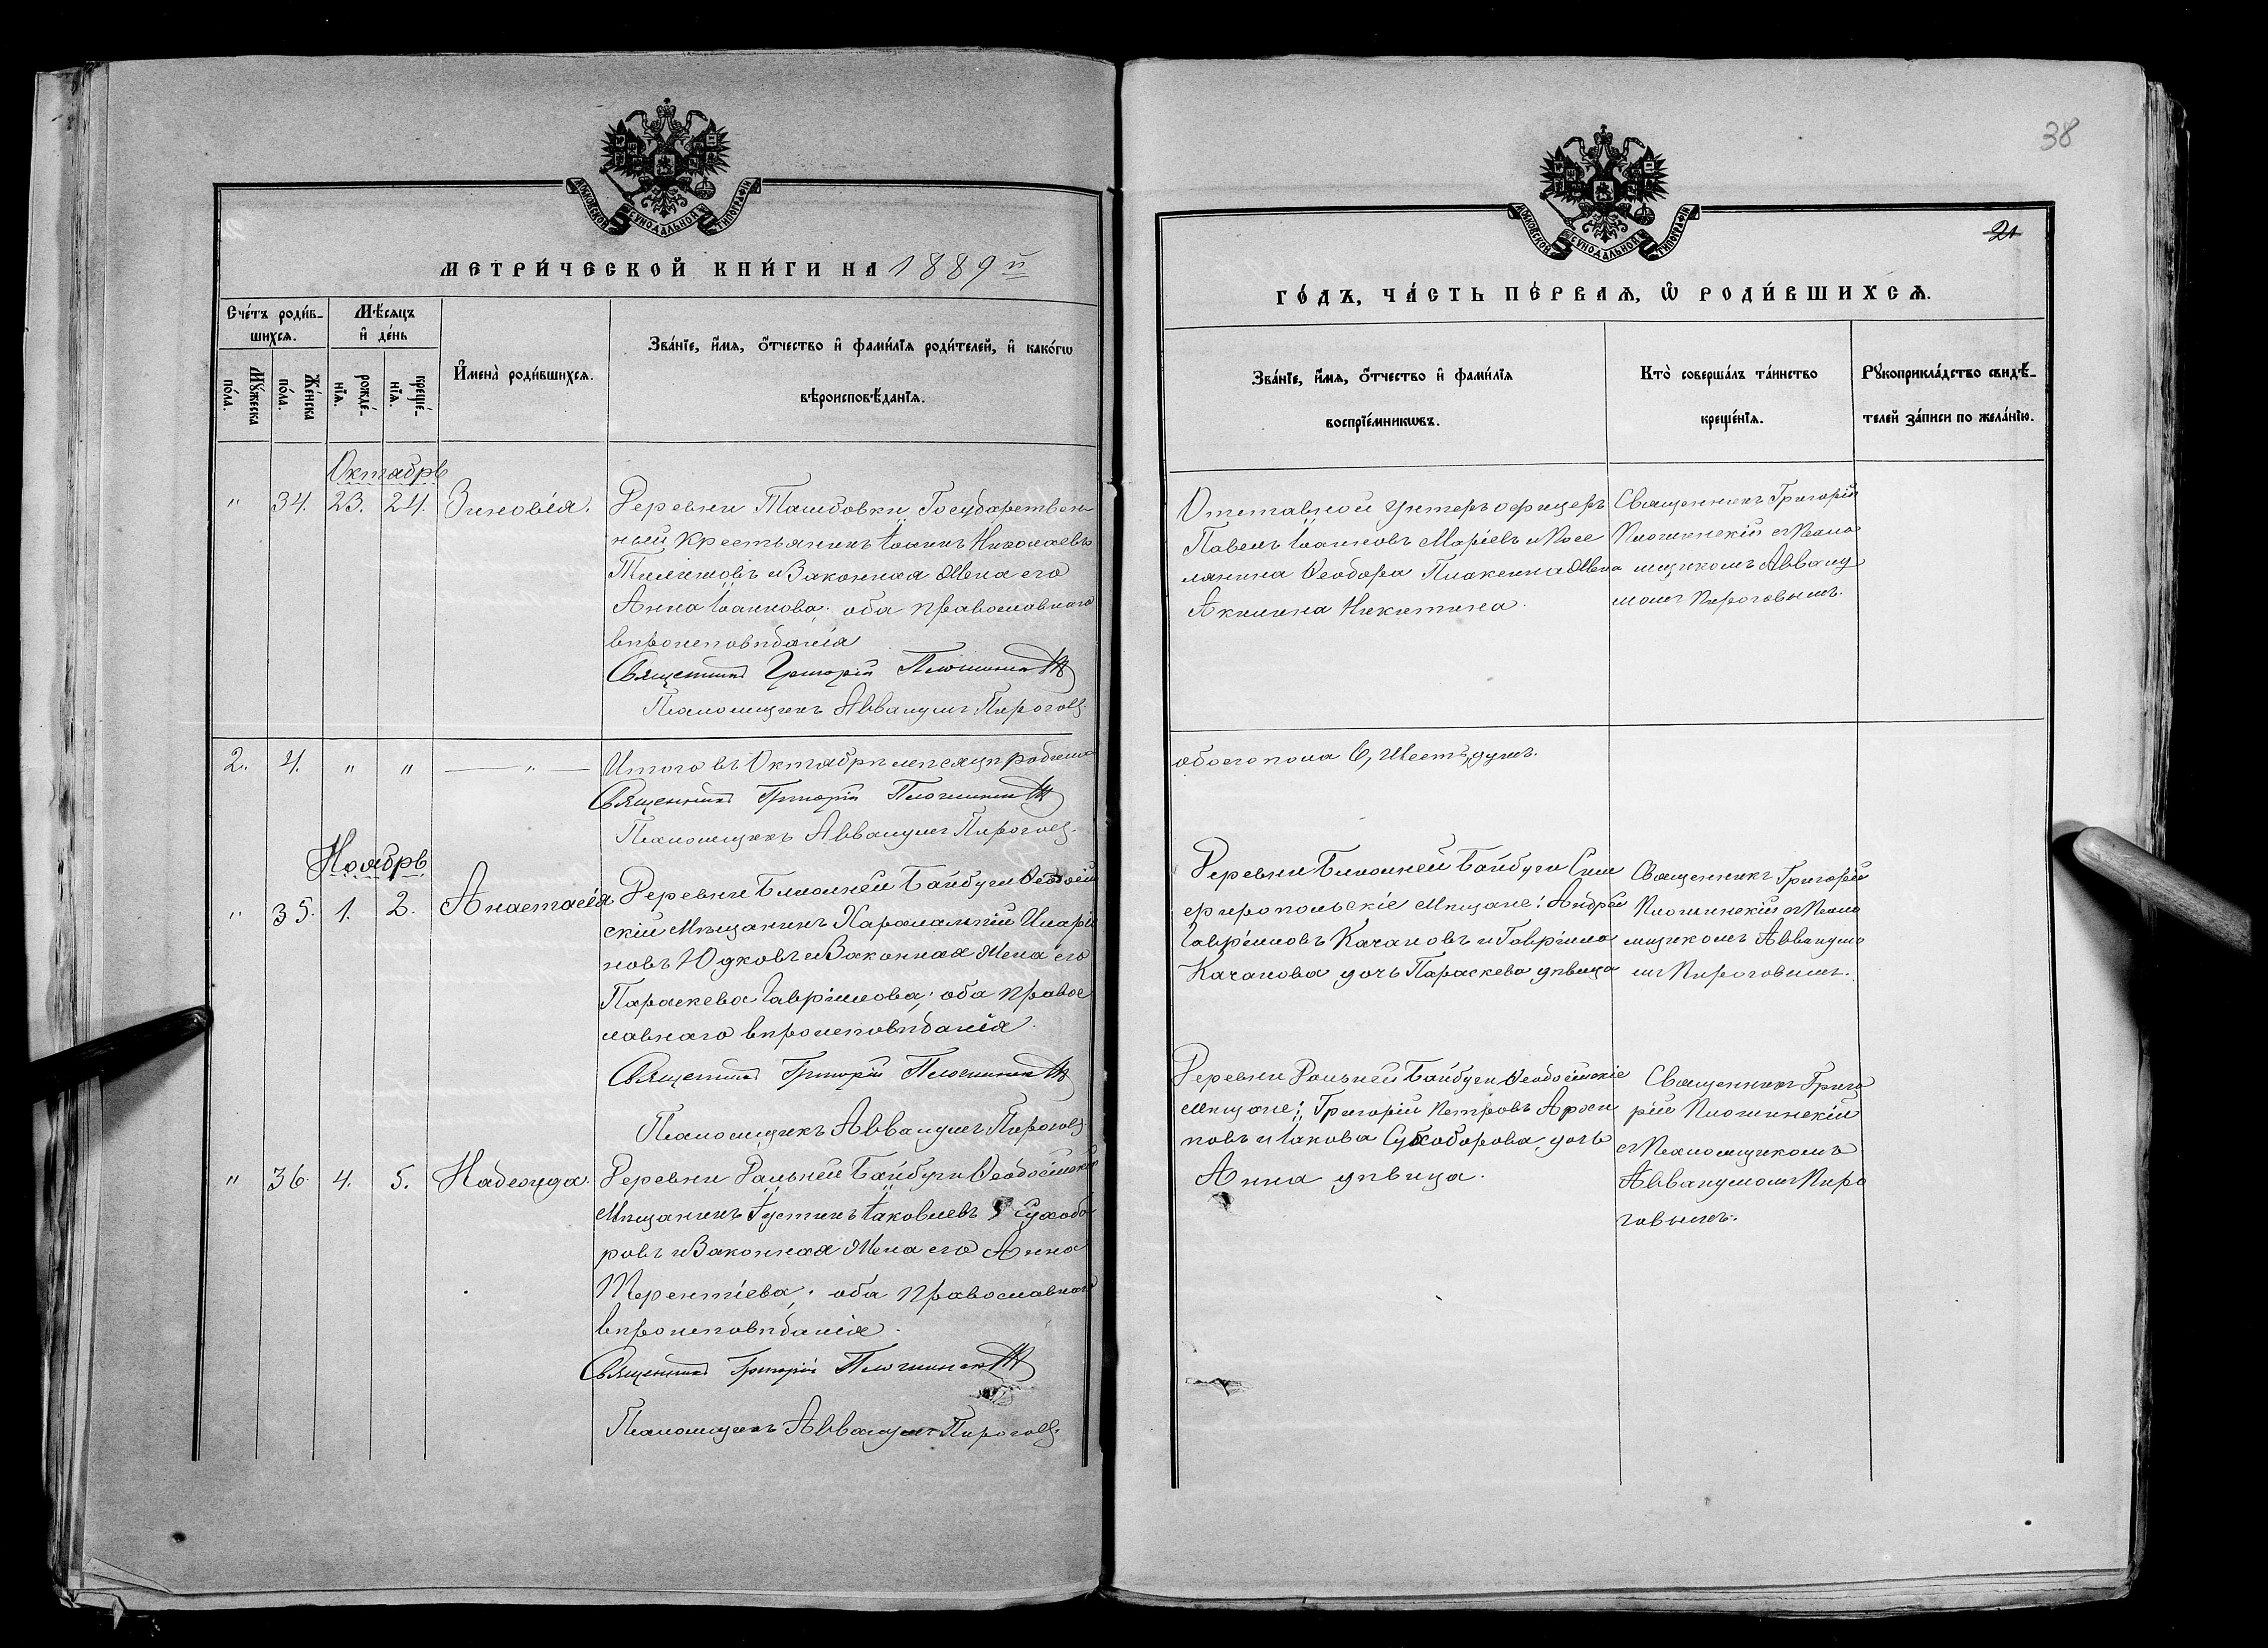 38
МОСКОВСКОЙ СѴНОДАЛЬНОЙ ТИПОГРАФІИ
МЕТРИ́ЧЕСКОЙ КНИ́ГИ НА 1889 й
Сче́тъ роди́в-
шихсѧ.
Мꙋ́жеска
по́ла.
Же́нска
по́ла.
Мѣ́сѧцъ
и҆ де́нь
рожде́-
нїѧ.
креще́-
нїѧ.
И҆мена̀ роди́вшихсѧ.
Зва́нїе, и҆́мѧ, о҆́тчество и҆ фами́лїѧ роди́телей, и҆ како́гѡ
вѣроисповѣ́данїѧ.
Октябрь
" 34. 23. 24. Зиновія.
Деревни Ташбовки Государствен-
ный крестьянинъ Іоаннъ Николаевъ
и Законная Жена его
Анна Іоаннова; оба православнаго
вѣроисповѣданія
Священникъ Григорій Плошинскій
Псаломщикъ Аввакумъ Пироговъ
2. 4. " " — " —
Итого въ Октябрѣ мѣсяцѣ родилось
Священникъ Григорій Плошинскій
Псаломщикъ Аввакумъ Пироговъ.
Ноябрь
" 35. 1. 2. Анастасія
Деревни Ближней Байбуги Ѳеодосій
скій Мѣщанинъ Харалампій Иларіо
новъ Юдковъ и Законная Жена его
Параскева Гавріилова; оба правос
лавнаго вѣроисповѣданія.
Священникъ Григорій Плошинскій
Псаломщикъ Аввакумъ Пироговъ
" 36. 4. 5. Надежда.
Деревни Дальней Байбуги Ѳеодосійскій
Мѣщанинъ Іустинъ Іаковлевъ Сухобо
ровъ и Законная Жена его Анна
Терентіева; оба православнаго
вѣроисповѣданія.
Священникъ Григорій Плошинскій
Псаломщикъ Аввакумъ Пироговъ.
МОСКОВСКОЙ СѴНОДАЛЬНОЙ ТИПОГРАФІИ
21
ГО́ДЪ, ЧА́СТЬ ПЕ́РВАѦ, Ѽ РОДИ́ВШИХСѦ.
Зва́нїе, и҆́мѧ, о҆́тчество и҆ фами́лїѧ
воспрїе́мникѡвъ.
Кто̀ соверша́лъ та́инство
креще́нїѧ.
Рꙋкоприкла́дство свидѣ́-
телей за́писи по жела́нїю.
Отставной унтеръ офицеръ
Павелъ Іоанновъ Маріевъ и Посе
лянина Ѳеодора Плаксина Жена
Акилина Никитина.
Священникъ Григорій
Плошинскій с Псало
мщикомъ Авваку
момъ Пироговымъ.
обоего пола 6, Шесть душъ.
Деревни Ближней Байбуги Сим
ферропольскіе Мѣщане: Андрей
Гавріиловъ Качановъ и Гавріила
Качанова дочь Параскева дѣвица
Священникъ Григорій
Плошинскій с Псало
мщикомъ Аввакумо
мъ Пироговымъ.
Деревни Дальней Байбуги Ѳеодосійскіе
Мѣщане: Григорій Петровъ Архи
повъ и Іакова Сухоборова дочь
Анна дѣвица.
Священникъ Григо
рій Плошинскій
с Псаломщикомъ
Аввакумомъ Пиро
говымъ.